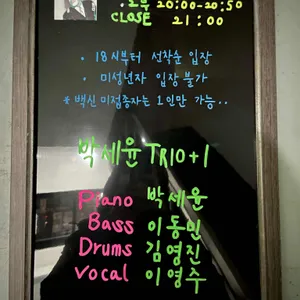 .오후 20:00-20:50
CLOSE 21:00
· 18시부터 선착순 입장
· 미성년자 입장 불가
* 백신 미접종자는 1인만 가능..
박세윤 TRIO+1
Piano 박세윤
Bass 이동민
Drums 김영진
Vocal 이영주